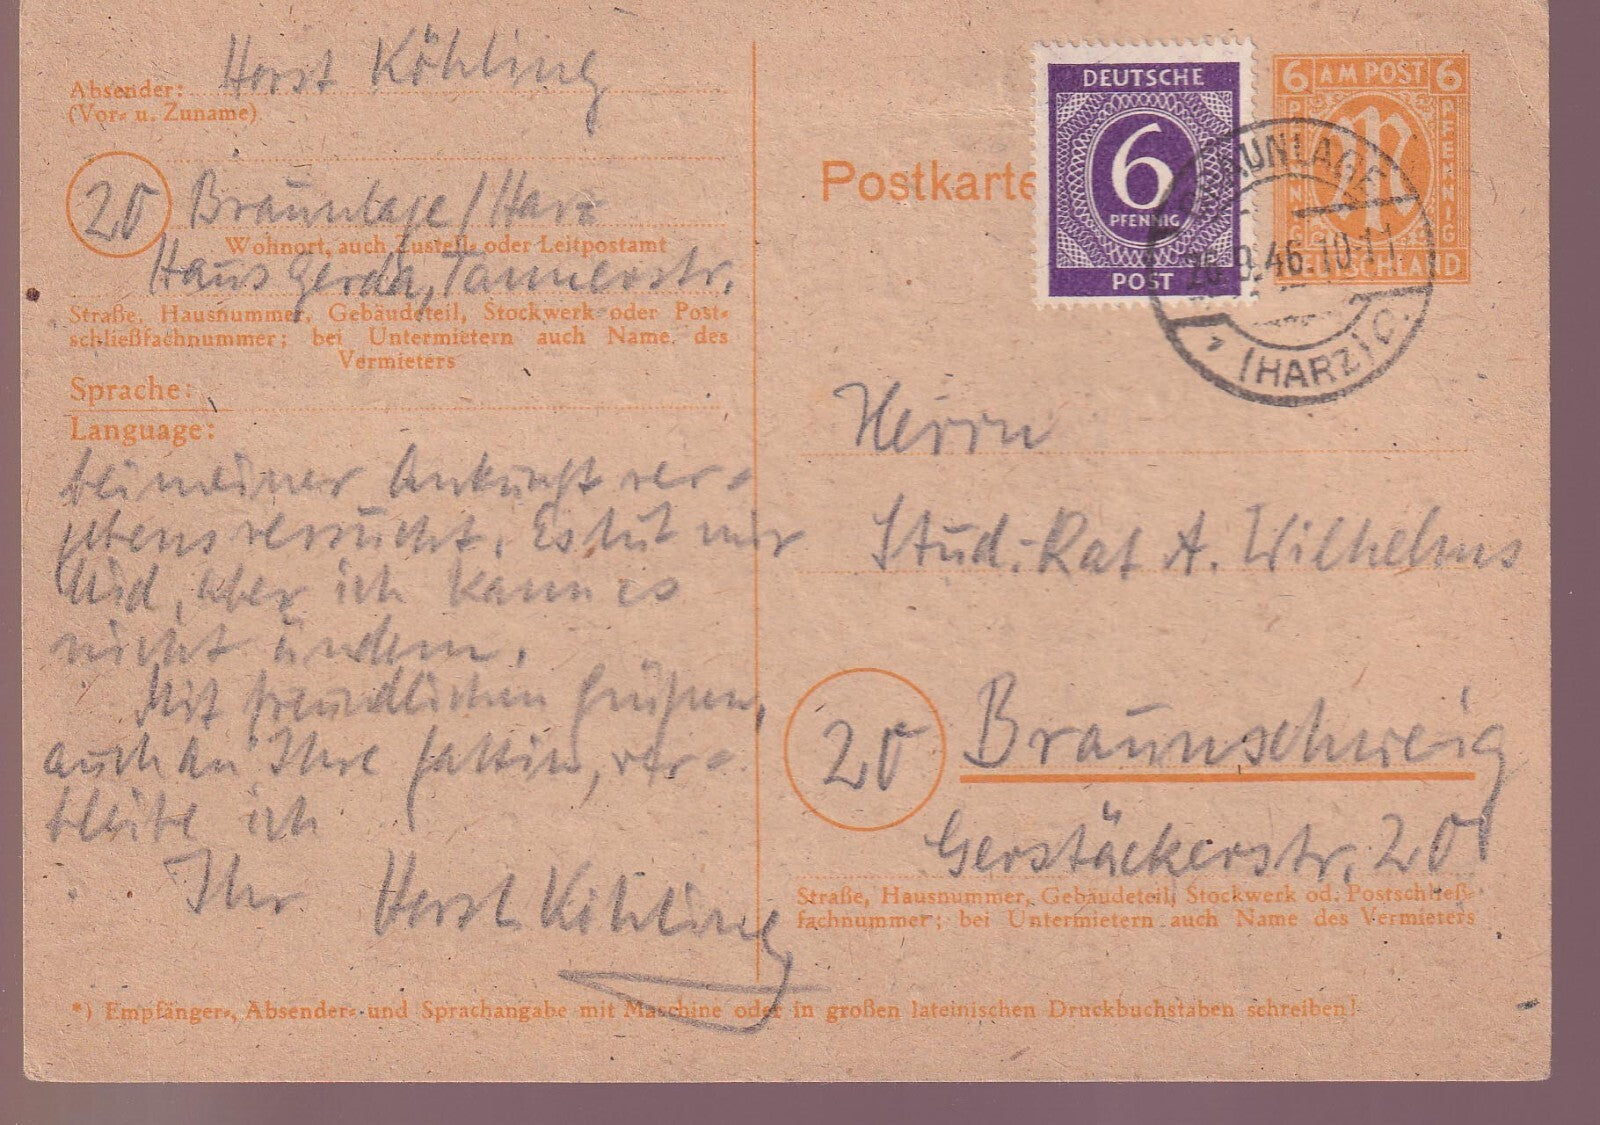 Absender: Horst Köhling
(Vor- u. Zuname)
20 Braunlage/Harz
Wohnort, auch Zustell- oder Leitpostamt
Haus Gerda, Tannerstr.
Straße, Hausnummer, Gebäudeteil, Stockwerk oder Post-
schließfachnummer; bei Untermietern auch Name des
Vermieters
Sprache:
Language:
bei meiner Ankunft ver-
gebens versucht. Es tut mir
leid, aber ich kann es
nicht ändern.
Mit freundlichen Grüßen,
auch an Ihre Gattin, ver-
bleibe ich
Ihr Horst Köhling
Postkarte
DEUTSCHE
6
PFENNIG
POST
6 AM POST 6
PFENNIG
M
PFENNIG
DEUTSCHLAND
BRAUNLAGE
.9.46.10-11
(HARZ) C.
Herrn
Stud.-Rat A. Wilhelms
20 Braunschweig
Gerstäckerstr. 20
Straße, Hausnummer, Gebäudeteil, Stockwerk od. Postschließ-
fachnummer; bei Untermietern auch Name des Vermieters
*) Empfänger-, Absender- und Sprachangabe mit Maschine oder in großen lateinischen Druckbuchstaben schreiben!